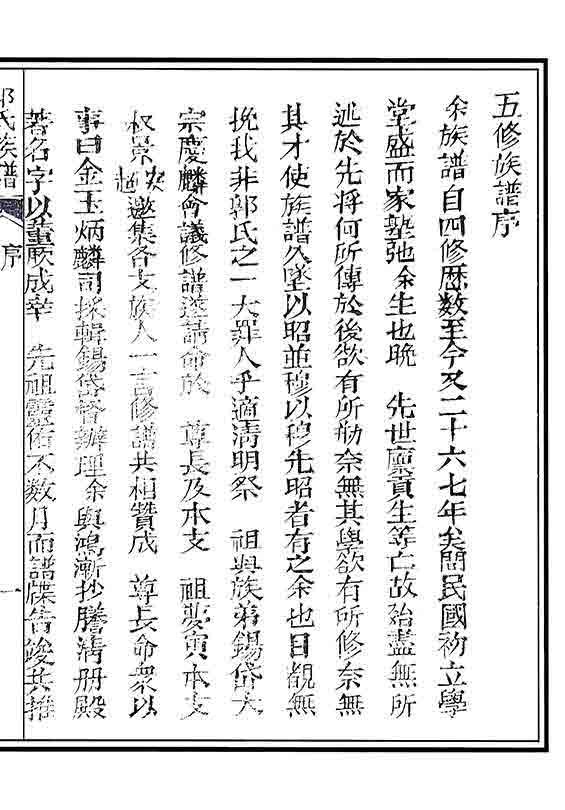 五修族譜序
余族譜自四修歷數至今又二十六七年矣閒民國初立學
堂盛而家塾弛余生也晚 先世廩貢生等亡故殆盡無所
述於先將何所傳於後欲有所刱奈無其學欲有所修奈無
其才使族譜久墜以昭並穆以穆先昭者有之余也目覩無
挽我非郭氏之一大罪人乎適清明祭 祖與族弟錫岱大
宗慶麟會議修譜遂請命於 尊長及本支 祖夢寅本支
叔景 邀集各支族人一言修譜共相贊成 尊長命眾以
事曰金玉炳麟司採輯錫岱督辦理余與鴻漸抄謄清册殿
著名字以董厥成幸 先祖靈佑不数月而譜牒告竣共推
郭氏族譜 序 一